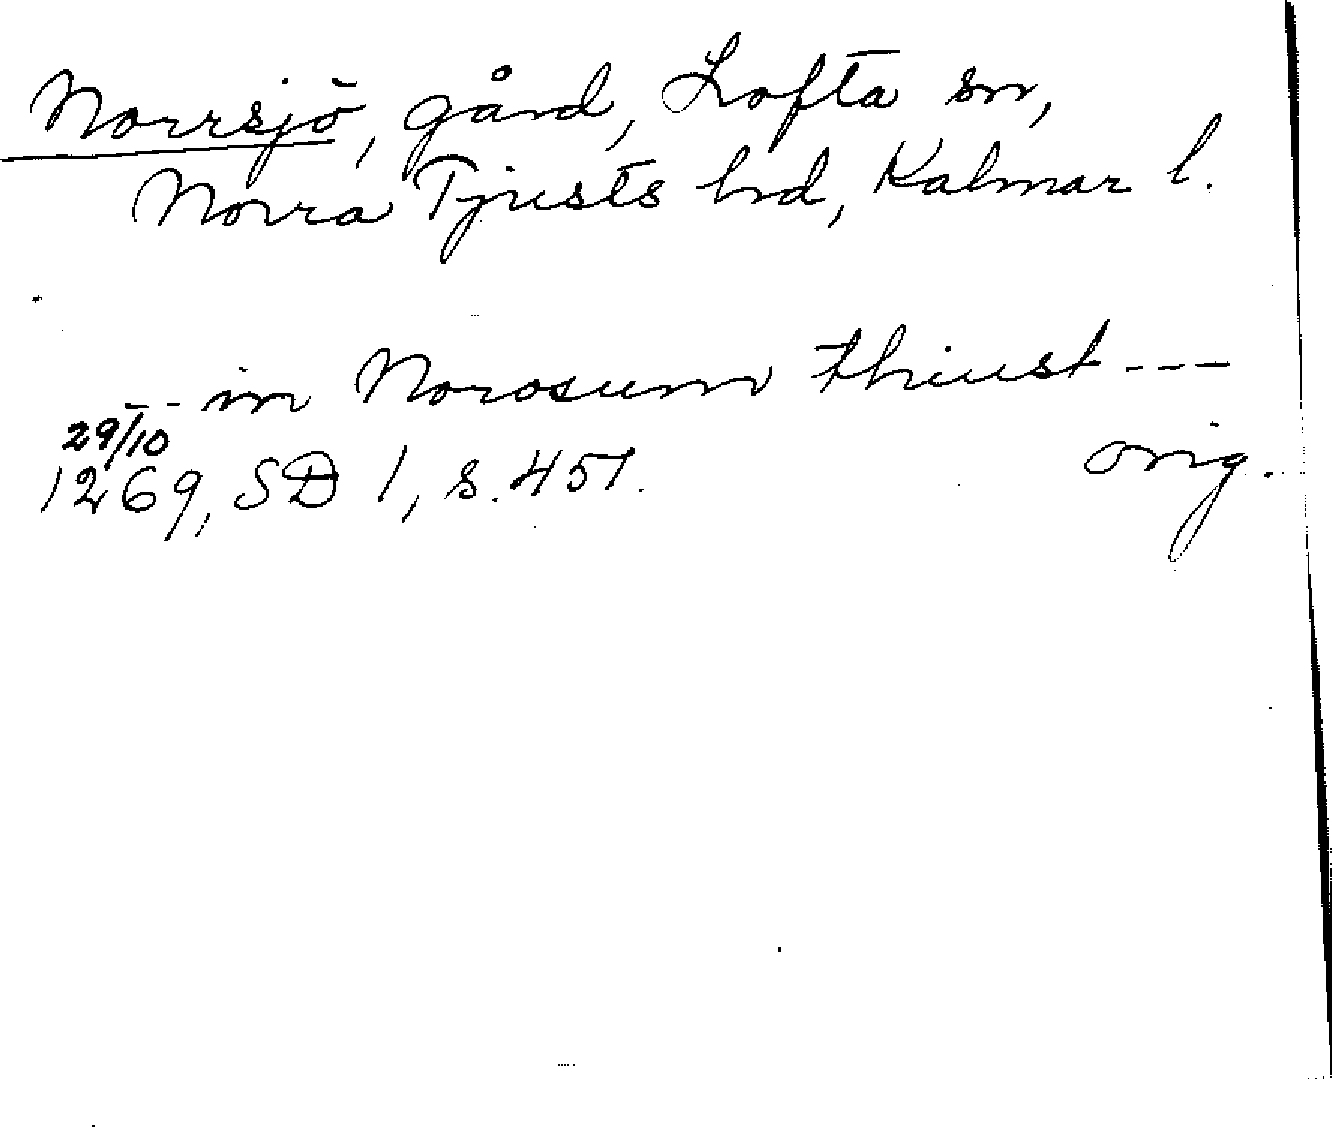 Norrsjö, gård, Lofta sn,
Norra Tjusts hd, Kalmar l.
--- in Norosum thiust ---
29/10
1269, SD 1, s. 451. orig.